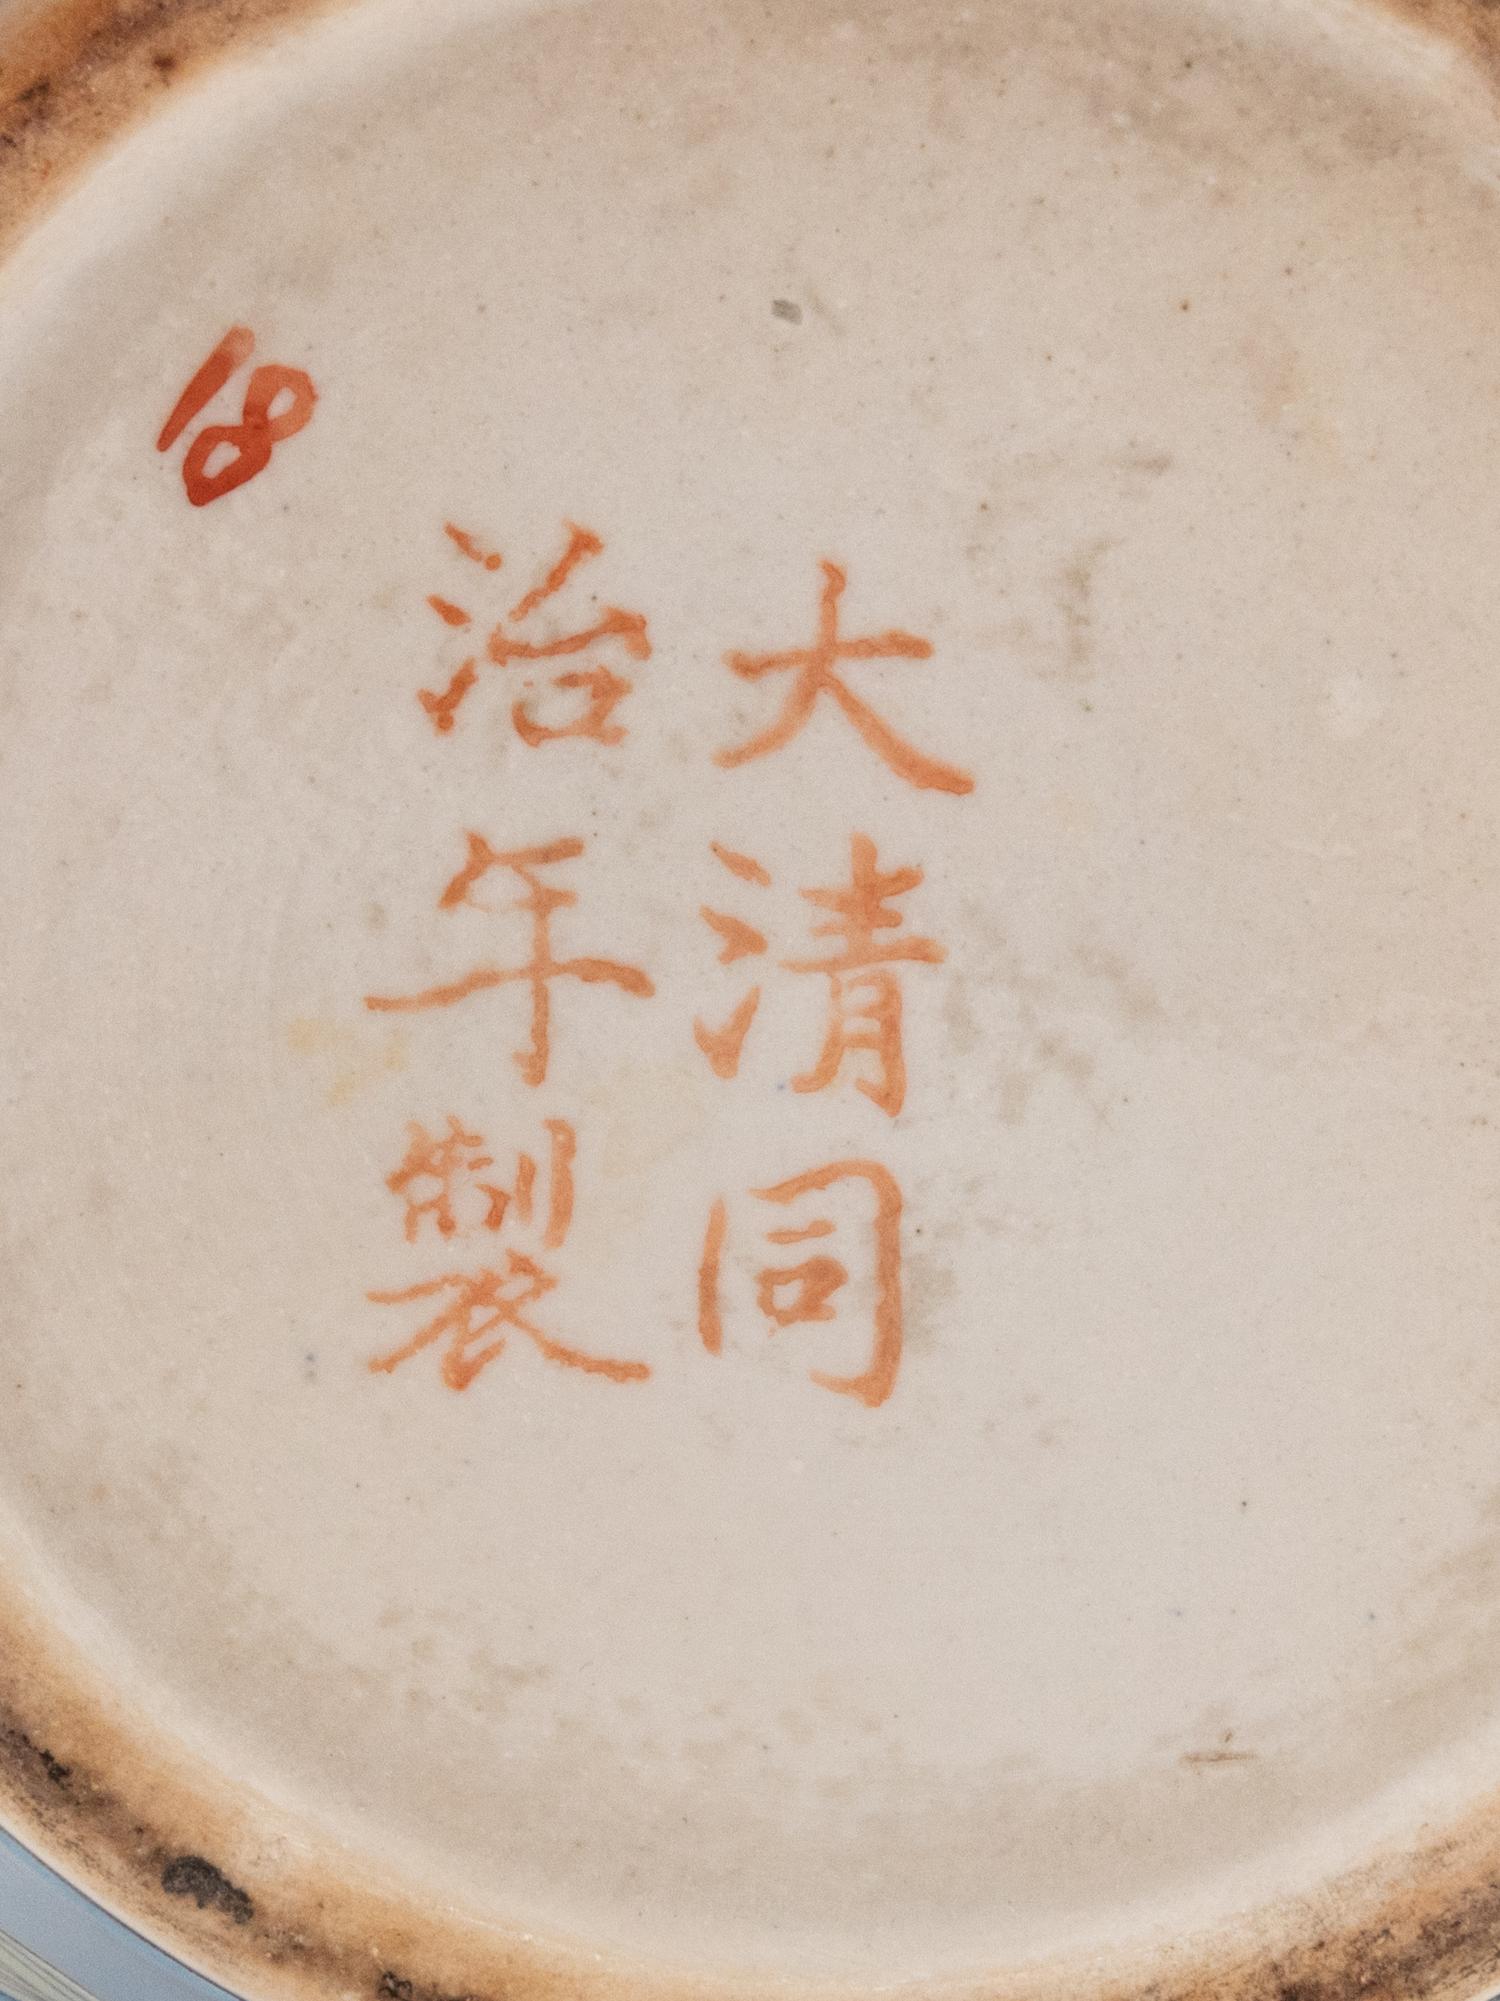 大清同
治年製
18